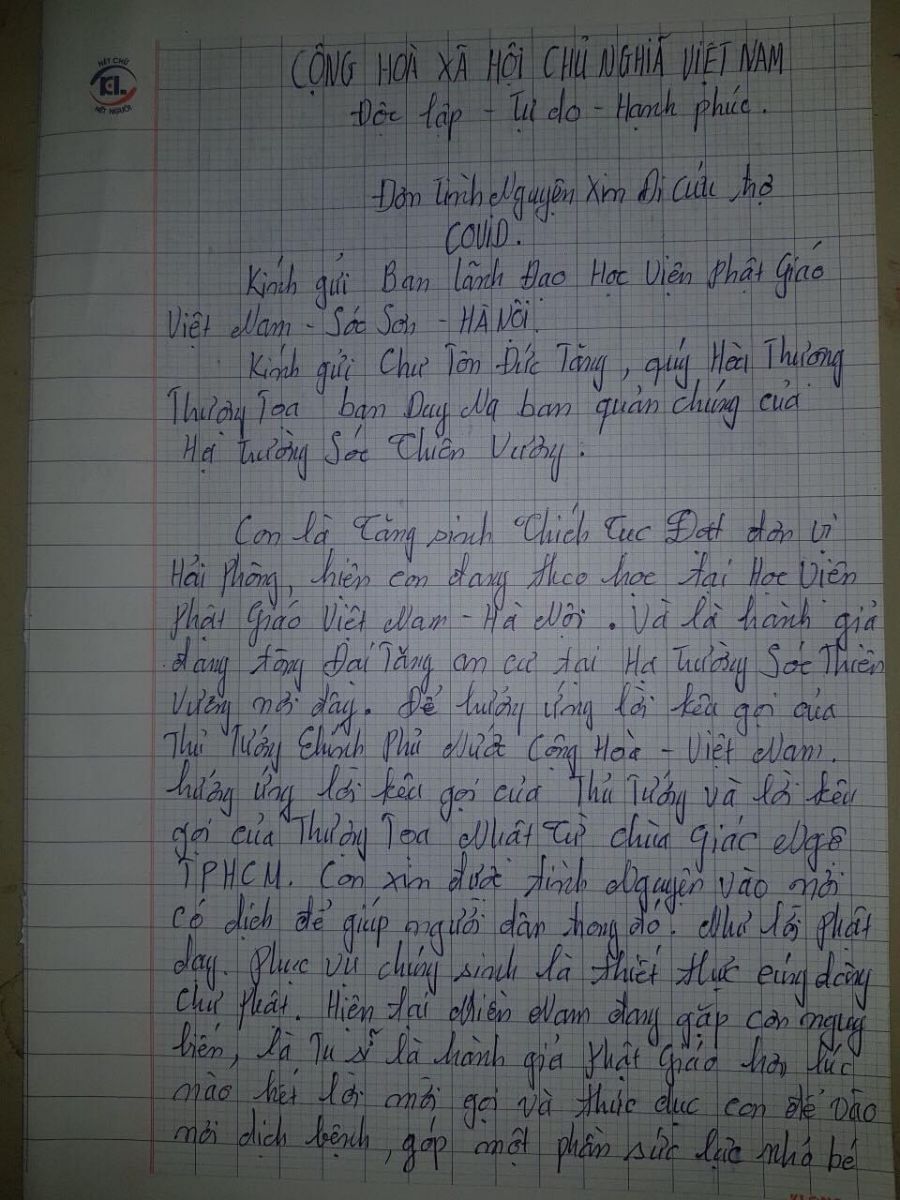 HẾT CHỮ
KL
HẾT NGƯỜI
CỘNG HOÀ XÃ HỘI CHỦ NGHĨA VIỆT NAM
Độc lập - Tự do - Hạnh phúc.
Đơn Tình Nguyện Xin Đi Cứu trợ
COVID.
Kính gửi Ban lãnh Đạo Học Viện Phật Giáo
Việt Nam - Sóc Sơn - HÀ NỘI.
Kính gửi Chư Tôn Đức Tăng, quý Hòa Thượng
Thượng Tọa ban Duy Na ban quản chúng của
Hạ Trường Sóc Thiên Vương.
Con là Tăng sinh Thích Tục Đạt đơn vị
Hải Phòng, hiện con đang theo học tại Học Viện
Phật Giáo Việt Nam - Hà Nội. Và là hành giả
đang tòng Đại Tăng an cư tại Hạ Trường Sóc Thiên
Vương nơi đây. Để hưởng ứng lời kêu gọi của
Thủ Tướng Chính Phủ Nước Cộng Hoà - Việt Nam.
hưởng ứng lời kêu gọi của Thủ Tướng và lời kêu
gọi của Thượng Tọa Nhật Từ chùa Giác Ngộ
TPHCM. Con xin được tình Nguyện vào nơi
có dịch để giúp người dân trong đó. Như lời Phật
dạy. Phục vụ chúng sinh là thiết thực cúng dàng
Chư Phật. Hiện tại Miền Nam đang gặp cơn nguy
biến, là Tu sĩ là hành giả Phật Giáo hơn lúc
nào hết lời mời gọi và thúc dục con để vào
nơi dịch bệnh, góp một phần sức lực nhỏ bé